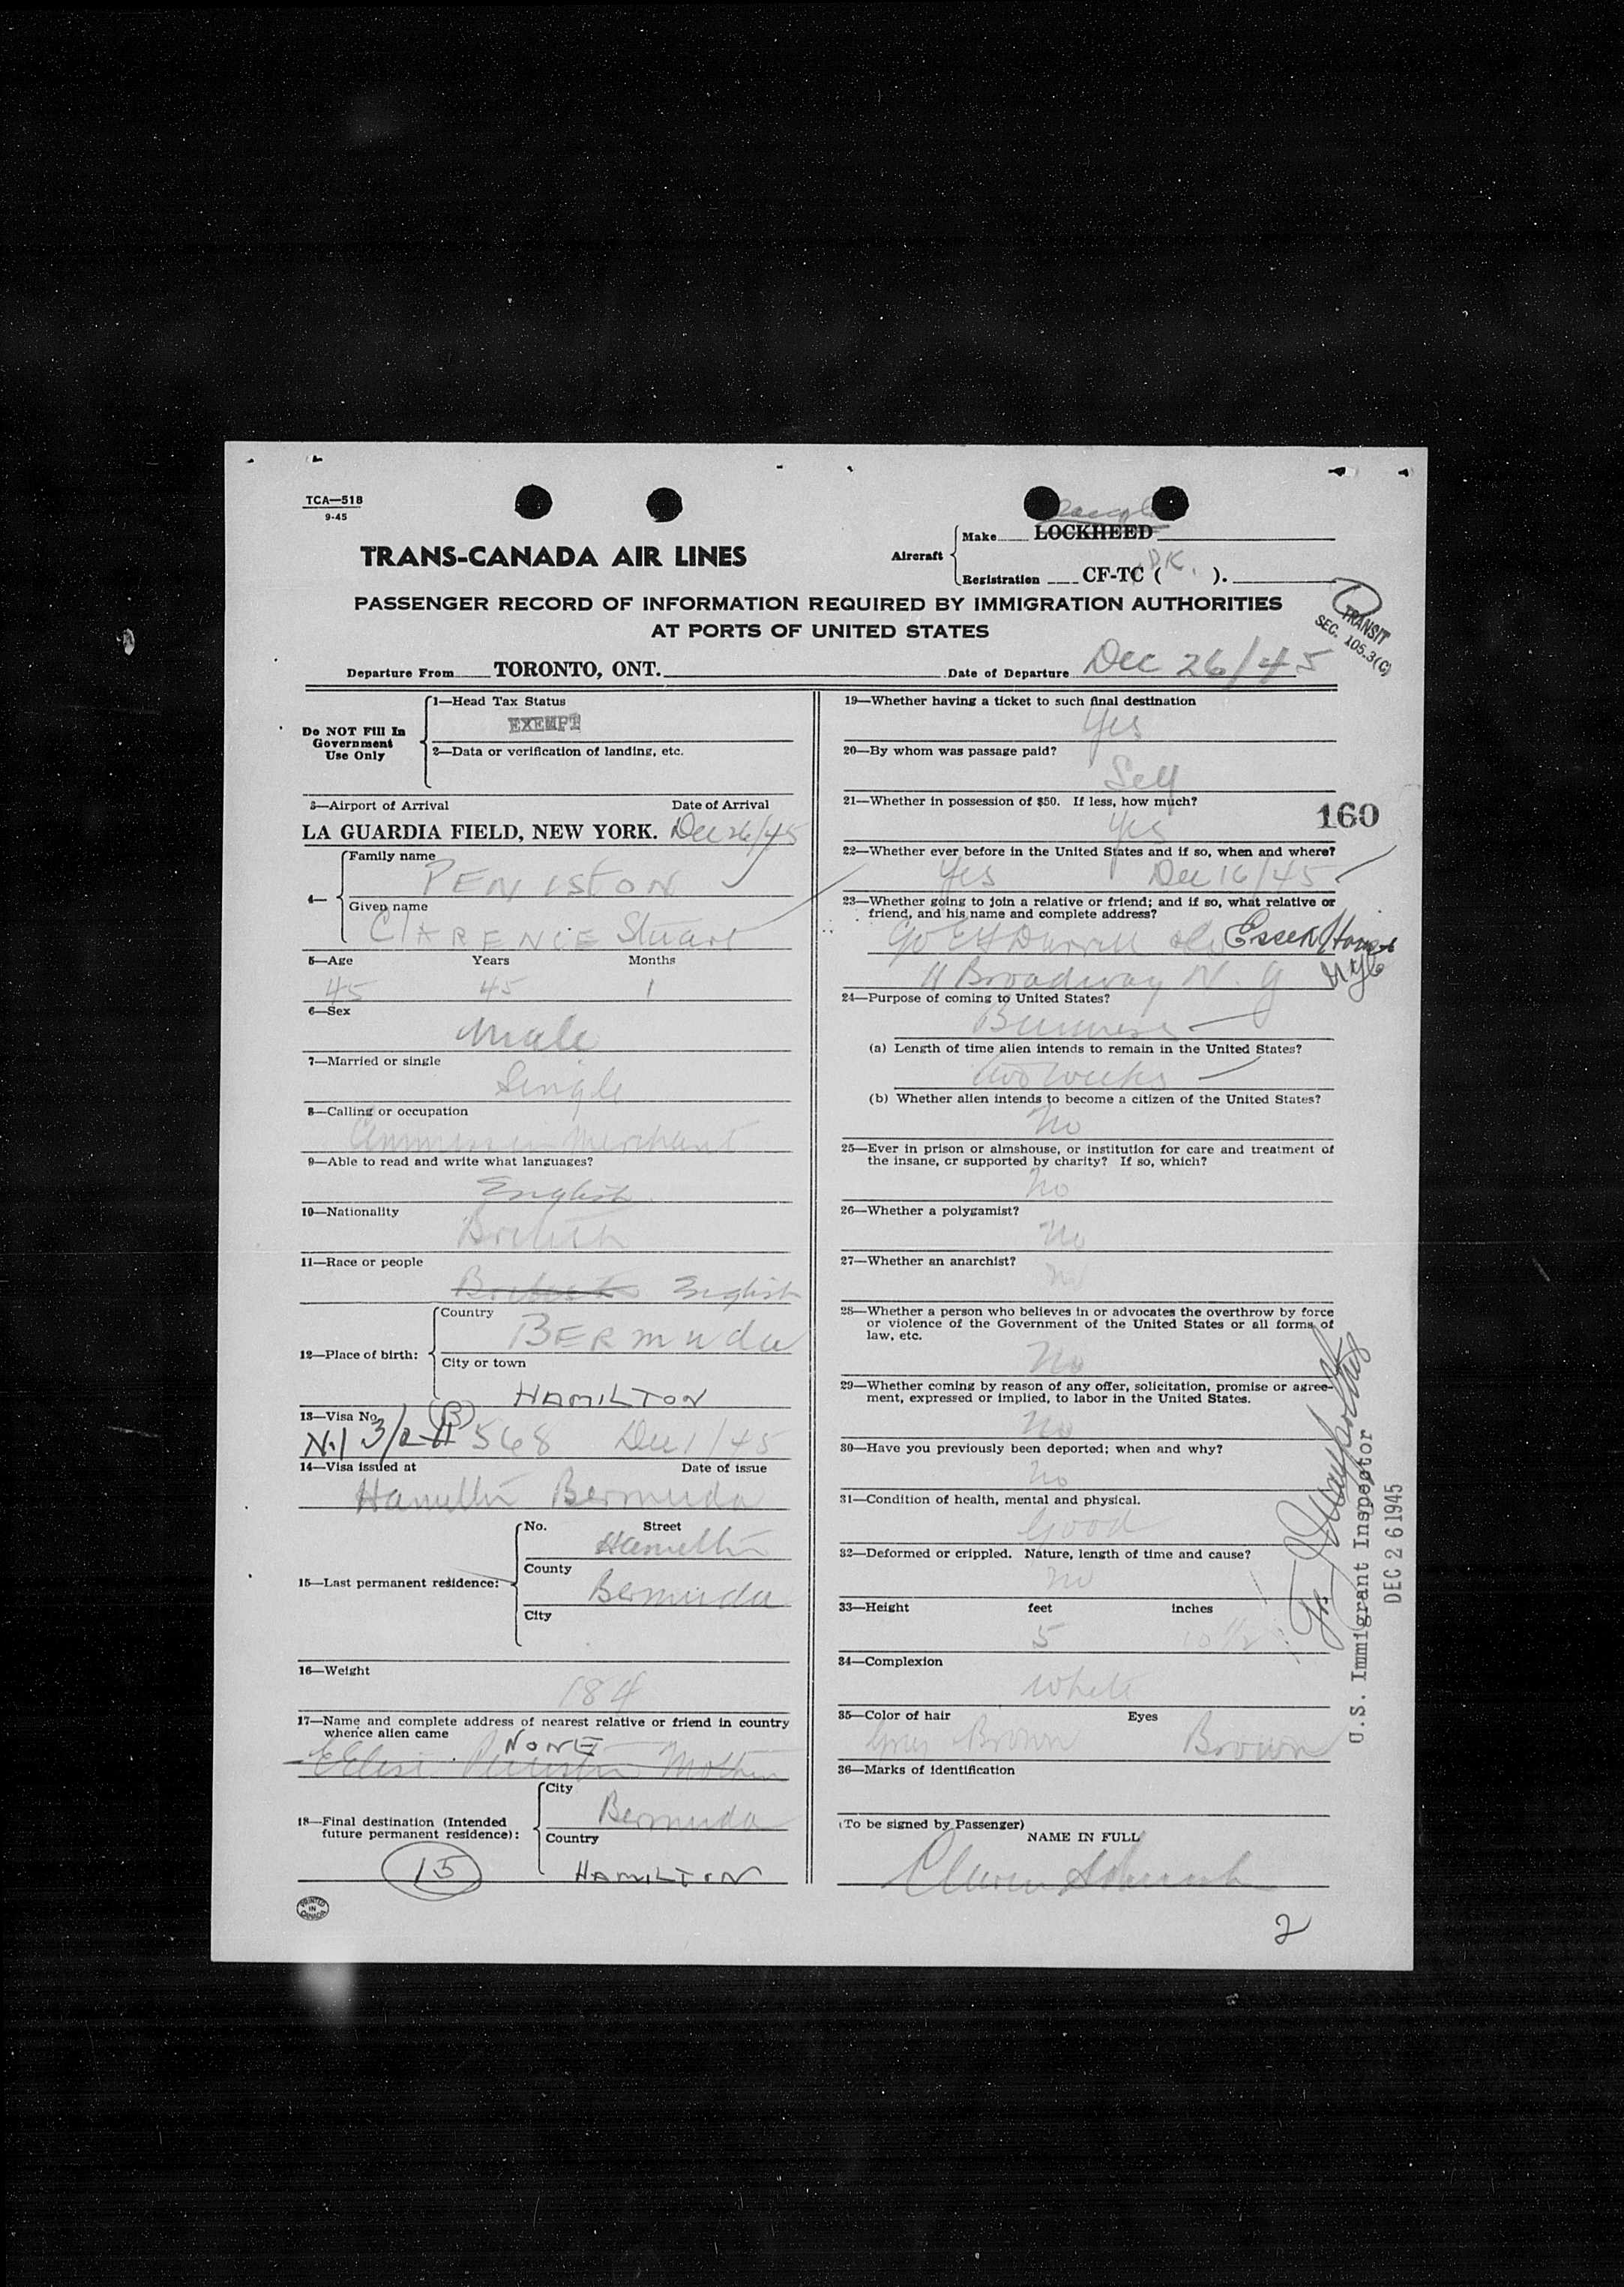 TCA—518
9-45
TRANS-CANADA AIR LINES
Aircraft
Make LOCKHEED
Registration CF-TC ( DK. ).
PASSENGER RECORD OF INFORMATION REQUIRED BY IMMIGRATION AUTHORITIES
AT PORTS OF UNITED STATES
TRANSIT
SEC. 105.3(C)
Departure From TORONTO, ONT. Date of Departure Dec 26/45
Do NOT Fill In
Government
Use Only
1—Head Tax Status
EXEMPT
2—Data or verification of landing, etc.
3—Airport of Arrival Date of Arrival
LA GUARDIA FIELD, NEW YORK. Dec 26/45
4—
Family name
PENISTON
Given name
CLARENCE Stuart
5—Age Years Months
45 45 1
6—Sex
Male
7—Married or single
Single
8—Calling or occupation
Commission Merchant
9—Able to read and write what languages?
English
10—Nationality
British
11—Race or people
British English
12—Place of birth:
Country
BERMUDA
City or town
HAMILTON
13—Visa No.
N.I 3/2 (B) 568 Dec 1/45
14—Visa issued at Date of issue
Hamilton Bermuda
15—Last permanent residence:
No. Street
Hamilton
County
Bermuda
City
16—Weight
184
17—Name and complete address of nearest relative or friend in country
whence alien came
NONE
Peniston Mother
18—Final destination (Intended
future permanent residence):
City
Bermuda
Country
HAMILTON
15
PRINTED
IN
CANADA
19—Whether having a ticket to such final destination
Yes
20—By whom was passage paid?
Self
21—Whether in possession of $50. If less, how much?
Yes
160
22—Whether ever before in the United States and if so, when and where?
Yes Dec 16/45
23—Whether going to join a relative or friend; and if so, what relative or
friend, and his name and complete address?
Essex House
11 Broadway N.Y NYC
24—Purpose of coming to United States?
Business
(a) Length of time alien intends to remain in the United States?
two weeks
(b) Whether alien intends to become a citizen of the United States?
No
25—Ever in prison or almshouse, or institution for care and treatment of
the insane, or supported by charity? If so, which?
No
26—Whether a polygamist?
No
27—Whether an anarchist?
No
28—Whether a person who believes in or advocates the overthrow by force
or violence of the Government of the United States or all forms of
law, etc.
No
29—Whether coming by reason of any offer, solicitation, promise or agree-
ment, expressed or implied, to labor in the United States.
No
30—Have you previously been deported; when and why?
No
31—Condition of health, mental and physical.
Good
32—Deformed or crippled. Nature, length of time and cause?
No
33—Height feet inches
5 10 1/2
34—Complexion
White
35—Color of hair Eyes
Grey Brown Brown
36—Marks of identification
(To be signed by Passenger)
NAME IN FULL
2
U.S. Immigrant Inspector
DEC 26 1945